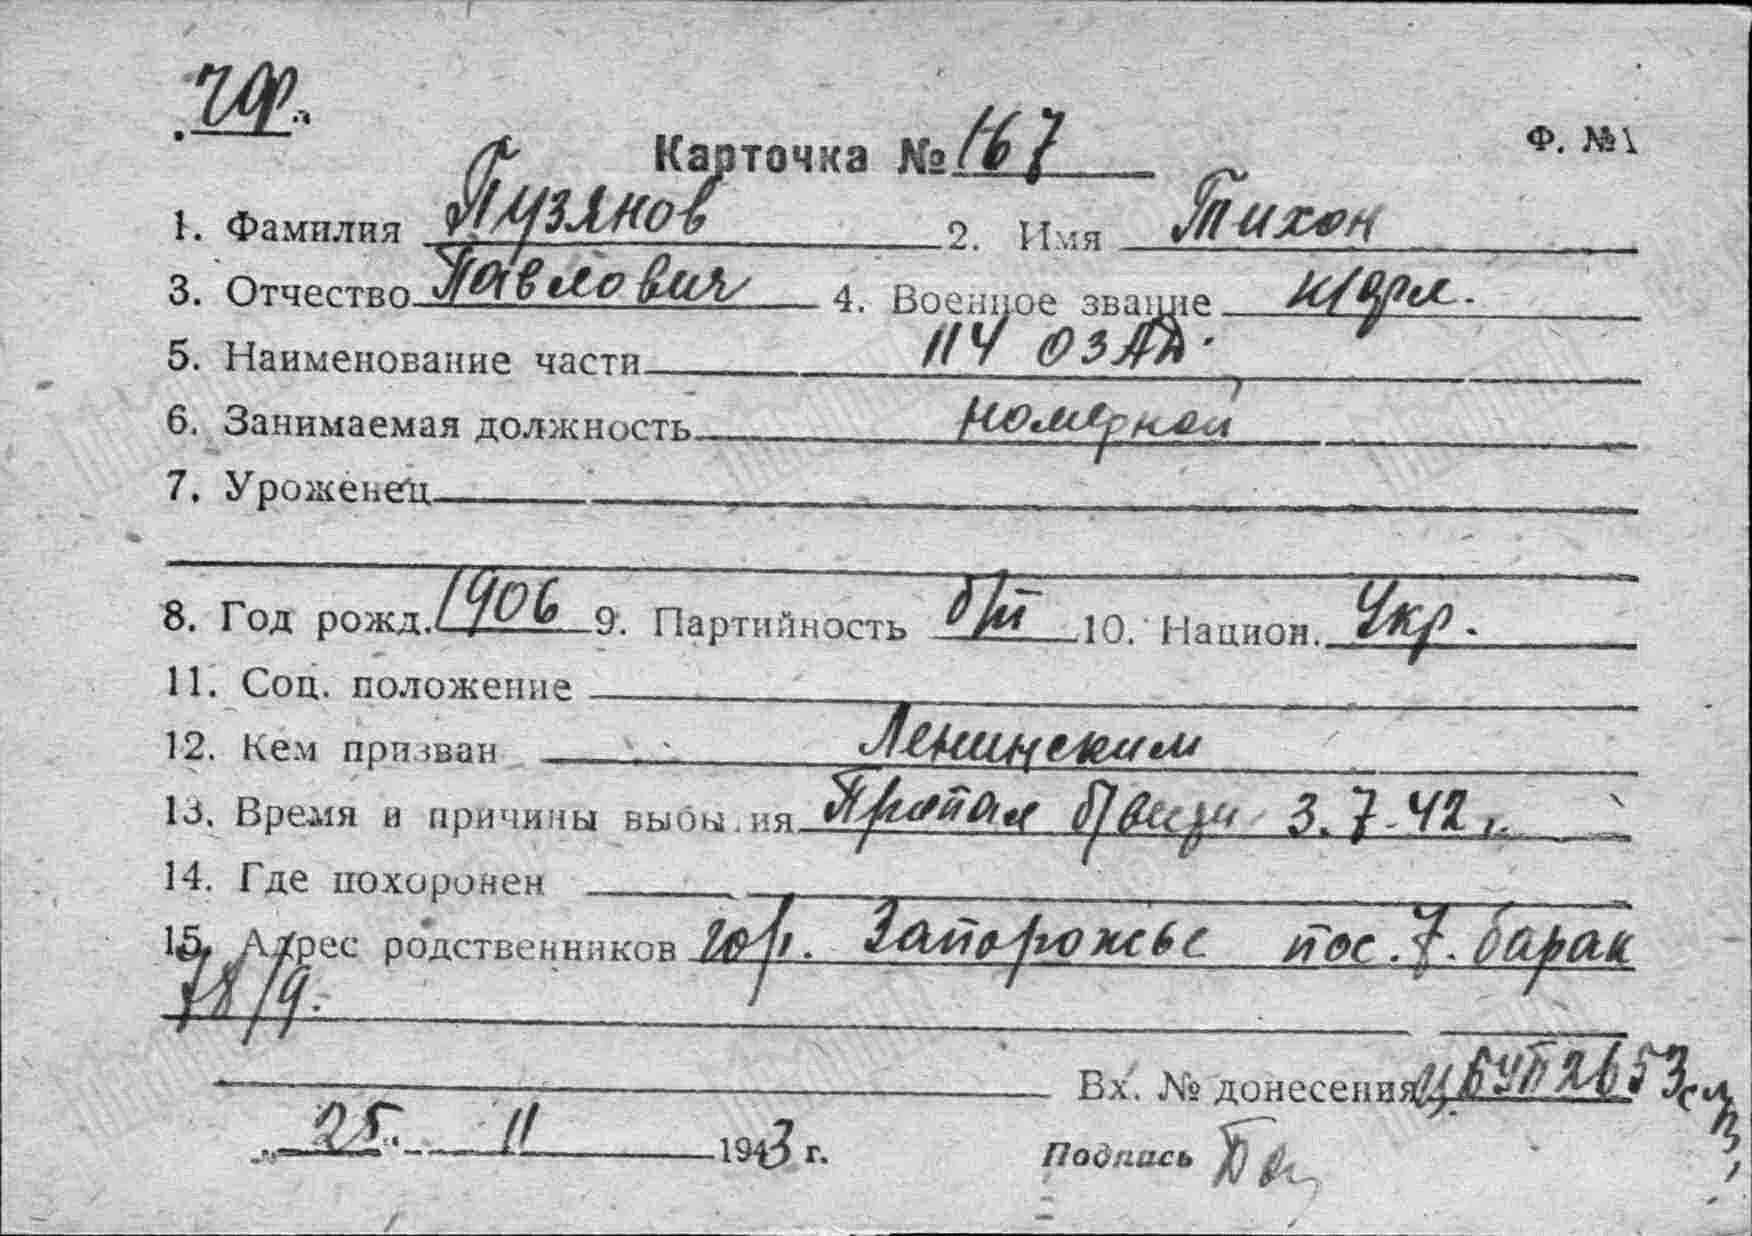 ЧФ.
Карточка № 167
Ф. №1
1. Фамилия Пузянов 2. Имя Тихон
3. Отчество Павлович 4. Военное звание к/арм.
5. Наименование части 114 ОЗАД.
6. Занимаемая должность номерной
7. Уроженец
8. Год рожд. 1906 9. Партийность б/п 10. Национ. Укр.
11. Соц. положение
12. Кем призван Ленинским
13. Время и причины выбытия Пропал б/вести 3.7.42 г.
14. Где похоронен
15. Адрес родственников гор. Запорожье пос. 7. барак
78/9.
Вх. № донесения 2653
„ 25 „ 11 1943 г. Подпись